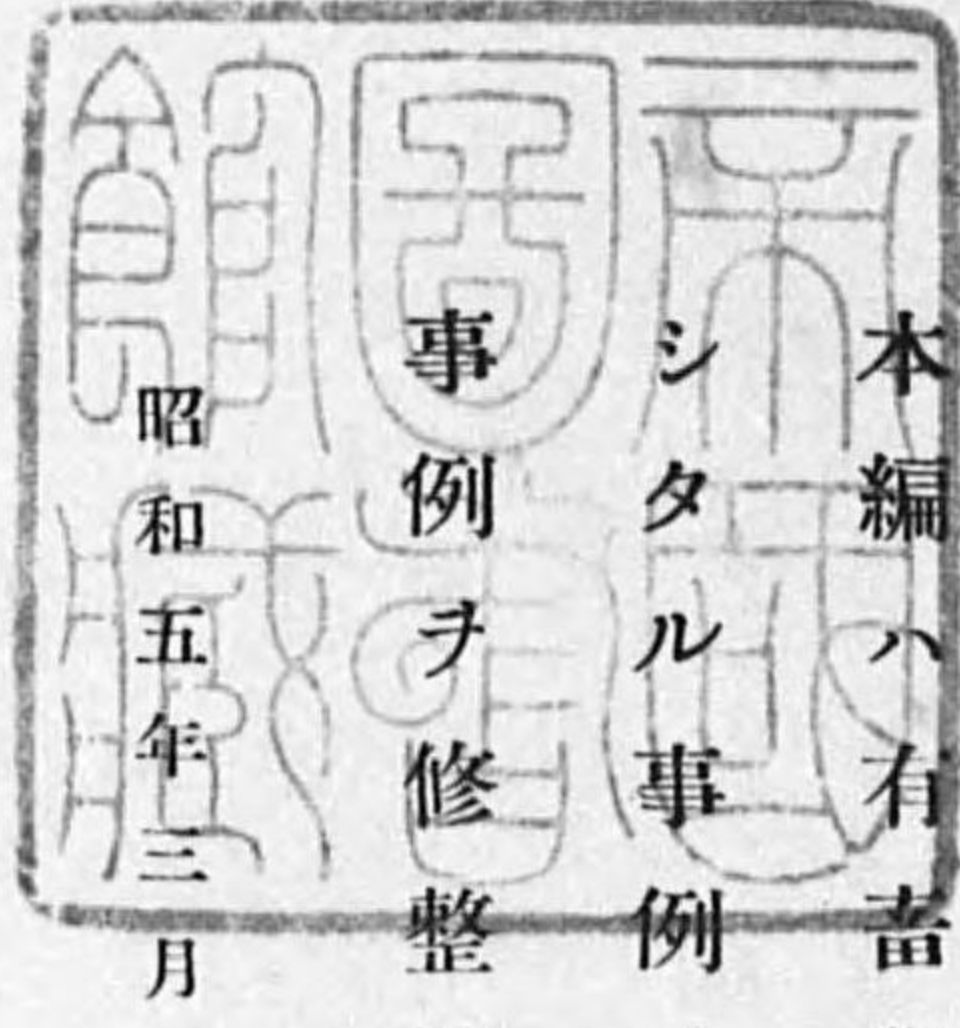 本編ハ有畜
シタル事例
事例ヲ修整
昭和五年三月
帝國圖書館藏